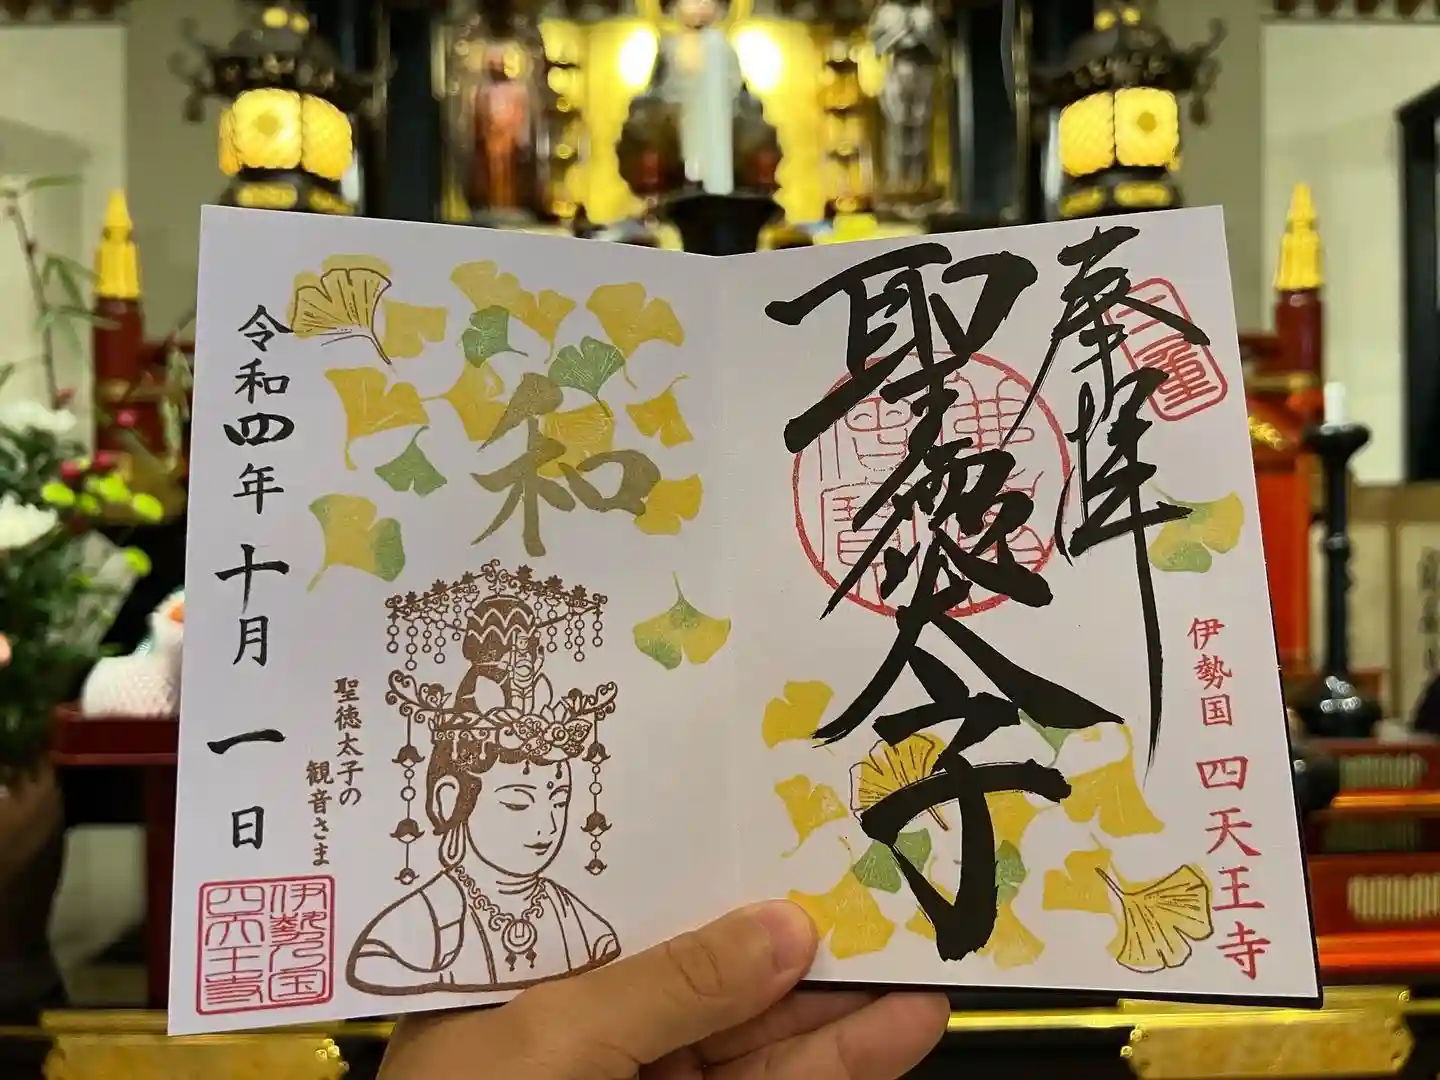 奉拝
聖徳太子
伊勢国 四天王寺
和
聖徳太子の
観音さま
令和四年 十月 一日
伊勢乃国
四天王寺